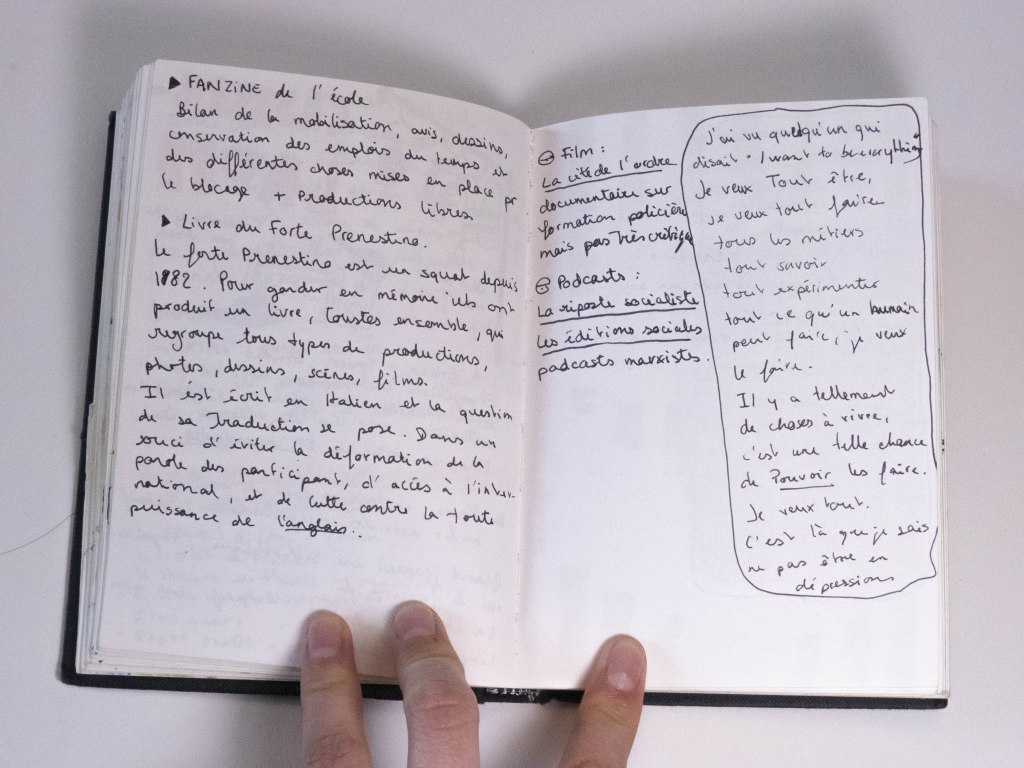 ▶ FANZINE de l'école
Bilan de la mobilisation, avis, dessins,
conservation des emplois du temps et
des différentes choses mises en place pr
le blocage + Productions libres
▶ Livre du Forte Prenestino.
Le forte Prenestino est un squat depuis
1982. Pour garder en mémoire ils ont
produit un livre, toustes ensemble, qui
regroupe tous types de productions,
photos, dessins, scènes, films.
Il est écrit en Italien et la question
de sa Traduction se pose. Dans un
souci d'éviter la déformation de la
parole des participant, d'accès à l'inter-
national, et de lutte contre la toute
puissance de l'anglais..
Film :
La cité de l'ordre
documentaire sur
formation policière
mais pas Très critique
Podcasts :
La riposte socialiste
Les éditions sociales
podcasts marxistes.
J'ai vu quelqu'un qui
disait "I want to be everything"
Je veux Tout être,
je veux tout faire
tous les métiers
tout savoir
tout expérimenter
tout ce qu'un humain
peut faire, je veux
le faire.
Il y a tellement
de choses à vivre,
c'est une telle chance
de Pouvoir les faire.
Je veux tout.
C'est là que je sais
ne pas être en
dépression